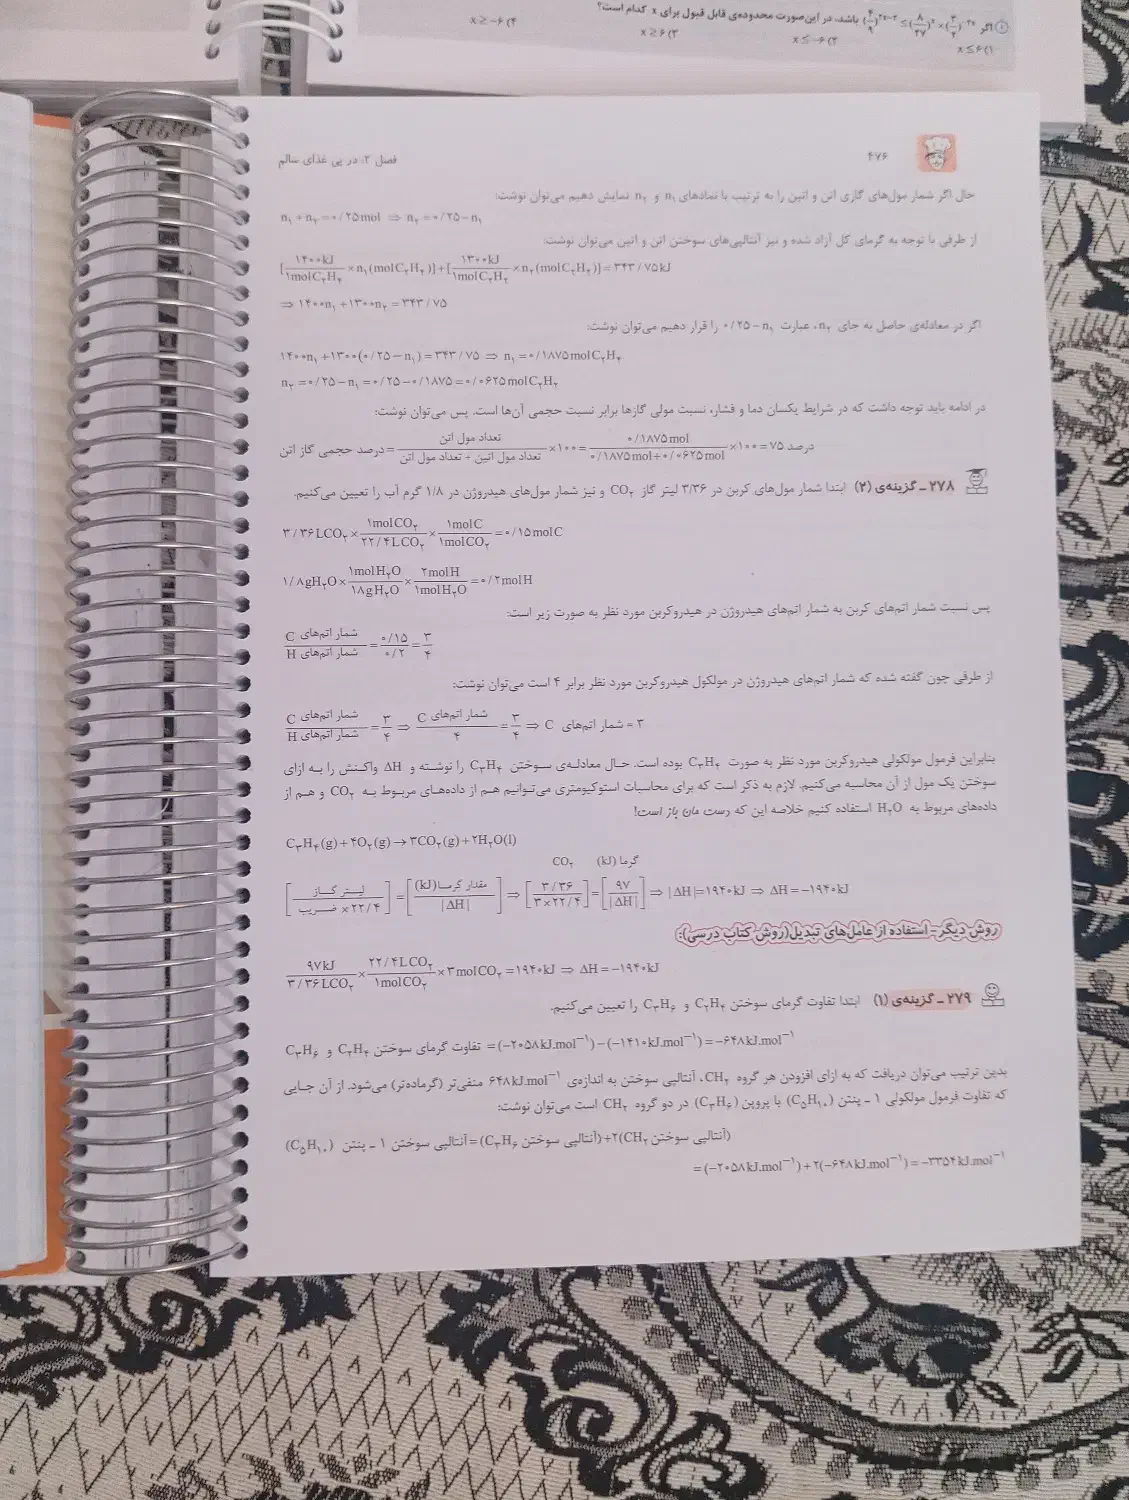 ① اگر (۴/۹)^۲x−۳ ≤ (۸/۲۷)^x × (۳/۲)^−۲x باشد، در این صورت محدوده‌ی قابل قبول برای x کدام است؟
۱) x ≤ ۶
۲) x ≤ −۶
۳) x ≥ ۶
۴) x ≥ −۶
۴۷۶
فصل ۲: در پی غذای سالم
حال اگر شمار مول‌های گازی اتن و اتین را به ترتیب با نمادهای n₁ و n₂ نمایش دهیم می‌توان نوشت:
n₁ + n₂ = ۰/۲۵ mol ⇒ n₂ = ۰/۲۵ − n₁
از طرفی با توجه به گرمای کل آزاد شده و نیز آنتالپی‌های سوختن اتن و اتین می‌توان نوشت:
[۱۴۰۰ kJ / ۱ mol C₂H₄ × n₁ (mol C₂H₄)] + [۱۳۰۰ kJ / ۱ mol C₂H₂ × n₂ (mol C₂H₂)] = ۳۴۳/۷۵ kJ
⇒ ۱۴۰۰n₁ + ۱۳۰۰n₂ = ۳۴۳/۷۵
اگر در معادله‌ی حاصل به جای n₂، عبارت ۰/۲۵ − n₁ را قرار دهیم می‌توان نوشت:
۱۴۰۰n₁ + ۱۳۰۰(۰/۲۵ − n₁) = ۳۴۳/۷۵ ⇒ n₁ = ۰/۱۸۷۵ mol C₂H₄
n₂ = ۰/۲۵ − n₁ = ۰/۲۵ − ۰/۱۸۷۵ = ۰/۰۶۲۵ mol C₂H₂
در ادامه باید توجه داشت که در شرایط یکسان دما و فشار، نسبت مولی گازها برابر نسبت حجمی آن‌ها است. پس می‌توان نوشت:
درصد حجمی گاز اتن = تعداد مول اتن / تعداد مول اتین + تعداد مول اتن × ۱۰۰ = ۰/۱۸۷۵ mol / ۰/۱۸۷۵ mol + ۰/۰۶۲۵ mol × ۱۰۰ = ۷۵ درصد
۲۷۸ ـ گزینه‌ی (۲) ابتدا شمار مول‌های کربن در ۳/۳۶ لیتر گاز CO₂ و نیز شمار مول‌های هیدروژن در ۱/۸ گرم آب را تعیین می‌کنیم.
۳/۳۶ L CO₂ × ۱ mol CO₂ / ۲۲/۴ L CO₂ × ۱ mol C / ۱ mol CO₂ = ۰/۱۵ mol C
۱/۸ g H₂O × ۱ mol H₂O / ۱۸ g H₂O × ۲ mol H / ۱ mol H₂O = ۰/۲ mol H
پس نسبت شمار اتم‌های کربن به شمار اتم‌های هیدروژن در هیدروکربن مورد نظر به صورت زیر است:
شمار اتم‌های C / شمار اتم‌های H = ۰/۱۵ / ۰/۲ = ۳/۴
از طرفی چون گفته شده که شمار اتم‌های هیدروژن در مولکول هیدروکربن مورد نظر برابر ۴ است می‌توان نوشت:
شمار اتم‌های C / شمار اتم‌های H = ۳/۴ ⇒ شمار اتم‌های C / ۴ = ۳/۴ ⇒ شمار اتم‌های C = ۳
بنابراین فرمول مولکولی هیدروکربن مورد نظر به صورت C₃H₄ بوده است. حال معادله‌ی سوختن C₃H₄ را نوشته و ΔH واکنش را به ازای
سوختن یک مول از آن محاسبه می‌کنیم. لازم به ذکر است که برای محاسبات استوکیومتری می‌توانیم هم از داده‌های مربوط به CO₂ و هم از
داده‌های مربوط به H₂O استفاده کنیم خلاصه این که دست مان باز است!
C₃H₄(g) + ۴O₂(g) → ۳CO₂(g) + ۲H₂O(l)
CO₂ گرما (kJ)
[لیتر گاز / ۲۲/۴ × ضریب] = [مقدار گرما (kJ) / |ΔH|] ⇒ [۳/۳۶ / ۳×۲۲/۴] = [۹۷ / |ΔH|] ⇒ |ΔH| = ۱۹۴۰ kJ ⇒ ΔH = −۱۹۴۰ kJ
روش دیگر – استفاده از عامل‌های تبدیل(روش کتاب درسی):
۹۷ kJ / ۳/۳۶ L CO₂ × ۲۲/۴ L CO₂ / ۱ mol CO₂ × ۳ mol CO₂ = ۱۹۴۰ kJ ⇒ ΔH = −۱۹۴۰ kJ
۲۷۹ ـ گزینه‌ی (۱) ابتدا تفاوت گرمای سوختن C₂H₄ و C₃H₆ را تعیین می‌کنیم.
تفاوت گرمای سوختن C₂H₄ و C₃H₆ = (−۲۰۵۸ kJ.mol⁻¹) − (−۱۴۱۰ kJ.mol⁻¹) = −۶۴۸ kJ.mol⁻¹
بدین ترتیب می‌توان دریافت که به ازای افزودن هر گروه CH₂، آنتالپی سوختن به اندازه‌ی ۶۴۸ kJ.mol⁻¹ منفی‌تر (گرماده‌تر) می‌شود. از آن جایی
که تفاوت فرمول مولکولی ۱ ـ پنتن (C₅H₁₀) با پروپن (C₃H₆) در دو گروه CH₂ است می‌توان نوشت:
(آنتالپی سوختن CH₂)۲ + (آنتالپی سوختن C₃H₆) = آنتالپی سوختن ۱ ـ پنتن (C₅H₁₀)
= (−۲۰۵۸ kJ.mol⁻¹) + ۲(−۶۴۸ kJ.mol⁻¹) = −۳۳۵۴ kJ.mol⁻¹